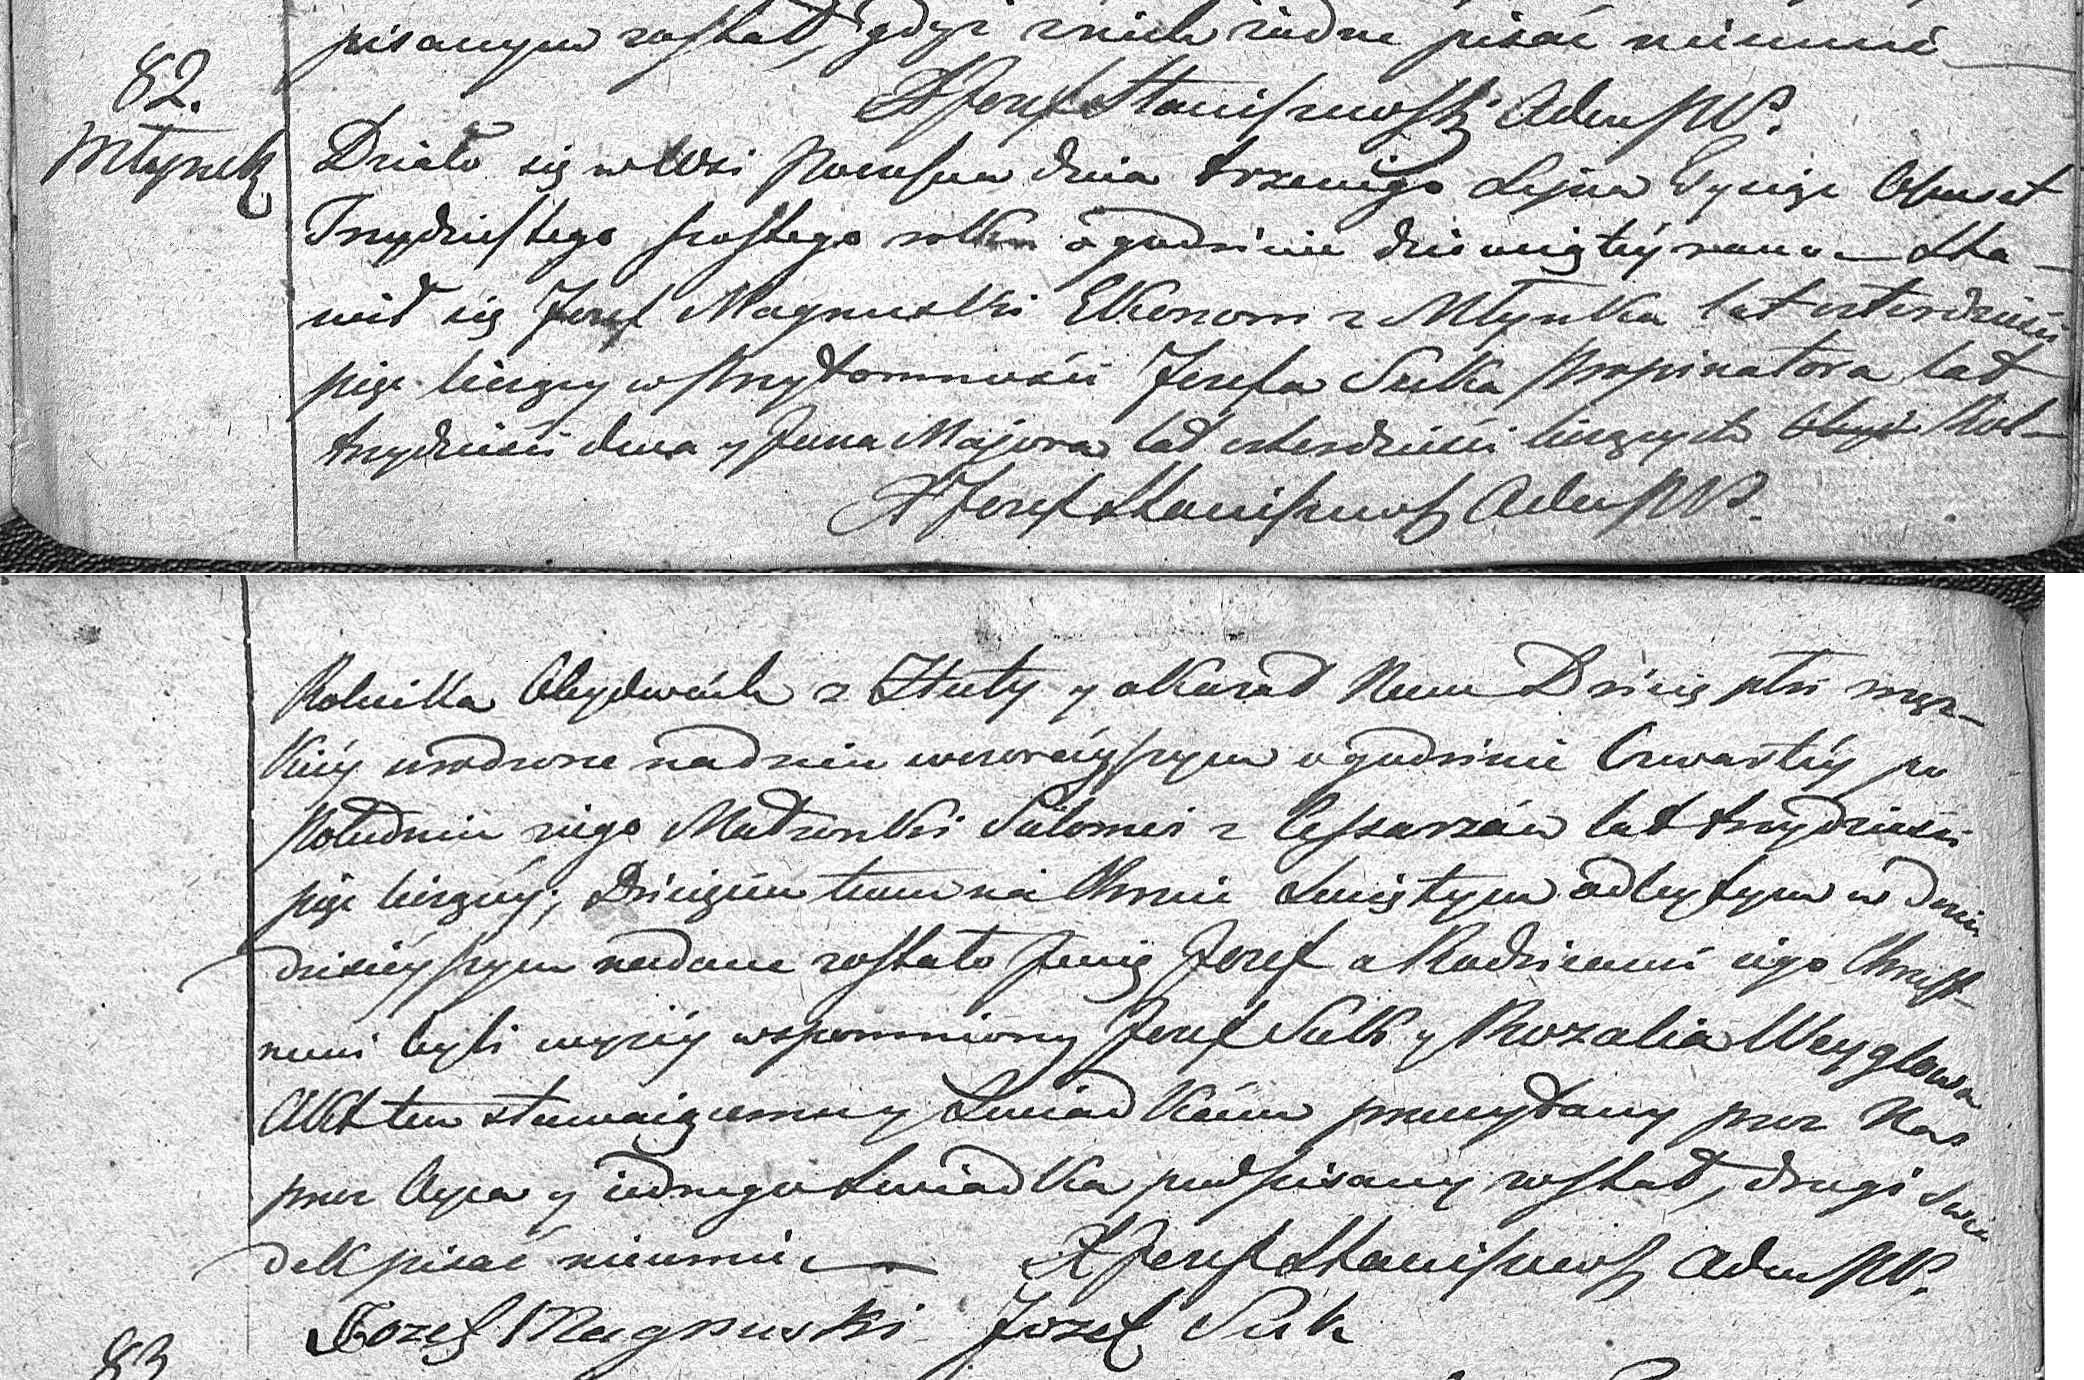 pisanym został, gdyż z nich żadne pisać nieumie
82.
Młynek
X Jozef Staniszewski Adm PP.
Działo się w Wsi dnia trzeciego Tysiąc Osmset
Trzydziestego szostego roku o godzinie dziewiątey rano – Sta–
wił się Jozef Magnuski Ekonom z Młynka lat czterdzieści
pięc liczący w Przytomności Jozefa Suka Propinatora lat
trzydzieści dwa y Jana Majora lat czterdzieści liczących Rol–
X Jozef Staniszewski Adm PP.
Rolnika Obydwóch z Huty y okazał Nam Dziecię płci męz–
kiéy urodzone na dniu wczorayszym o godzinie Czwartéy po
Południu z iego Małżonki Salomei z Cessarzów lat trzydzieści
pięc liczącéy; Dziecięciu temu na Chrzcie Swiętym odbytym w dniu
dzisieyszym nadane zostało Imię Jozef a Rodzicami iego Chrzest–
nemi byli wyżéy wspomniony Jozef Suk y Rozalia Weyglowa
Akt ten stawaiącemu y Swiadkóm przeczytany przez Nas
przez Oyca y iednego Swiadka podpisany został, drugi Swia
dek pisać nieumie – X Jozef Staniszewski Adm PP.
Jozef Magnuski Jozef Suk
83